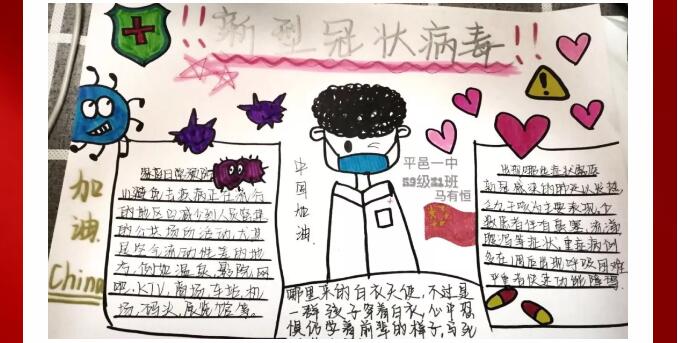 !! 新型冠状病毒 !!
平邑一中
59级21班
马有恒
中国加油.
加油.
China
出现哪些症状需要
新冠感染的肺炎以发热
乏力干咳为主要表现,少
数患者伴有鼻塞,流涕
腹泻等症状,重症病例
多在1周后出现呼吸困难
①避免去疾病正在流行
的地区②减少到人员密集
的公共场所活动,尤其
是空气流动性差的地
方,例如温泉,影院,网
吧,KTV,商场,车站,机
场,码头,展览馆等。
哪里来的白衣天使,不过是
一群孩子穿着白衣,心中恐
惧仿学着前辈的样子,与死